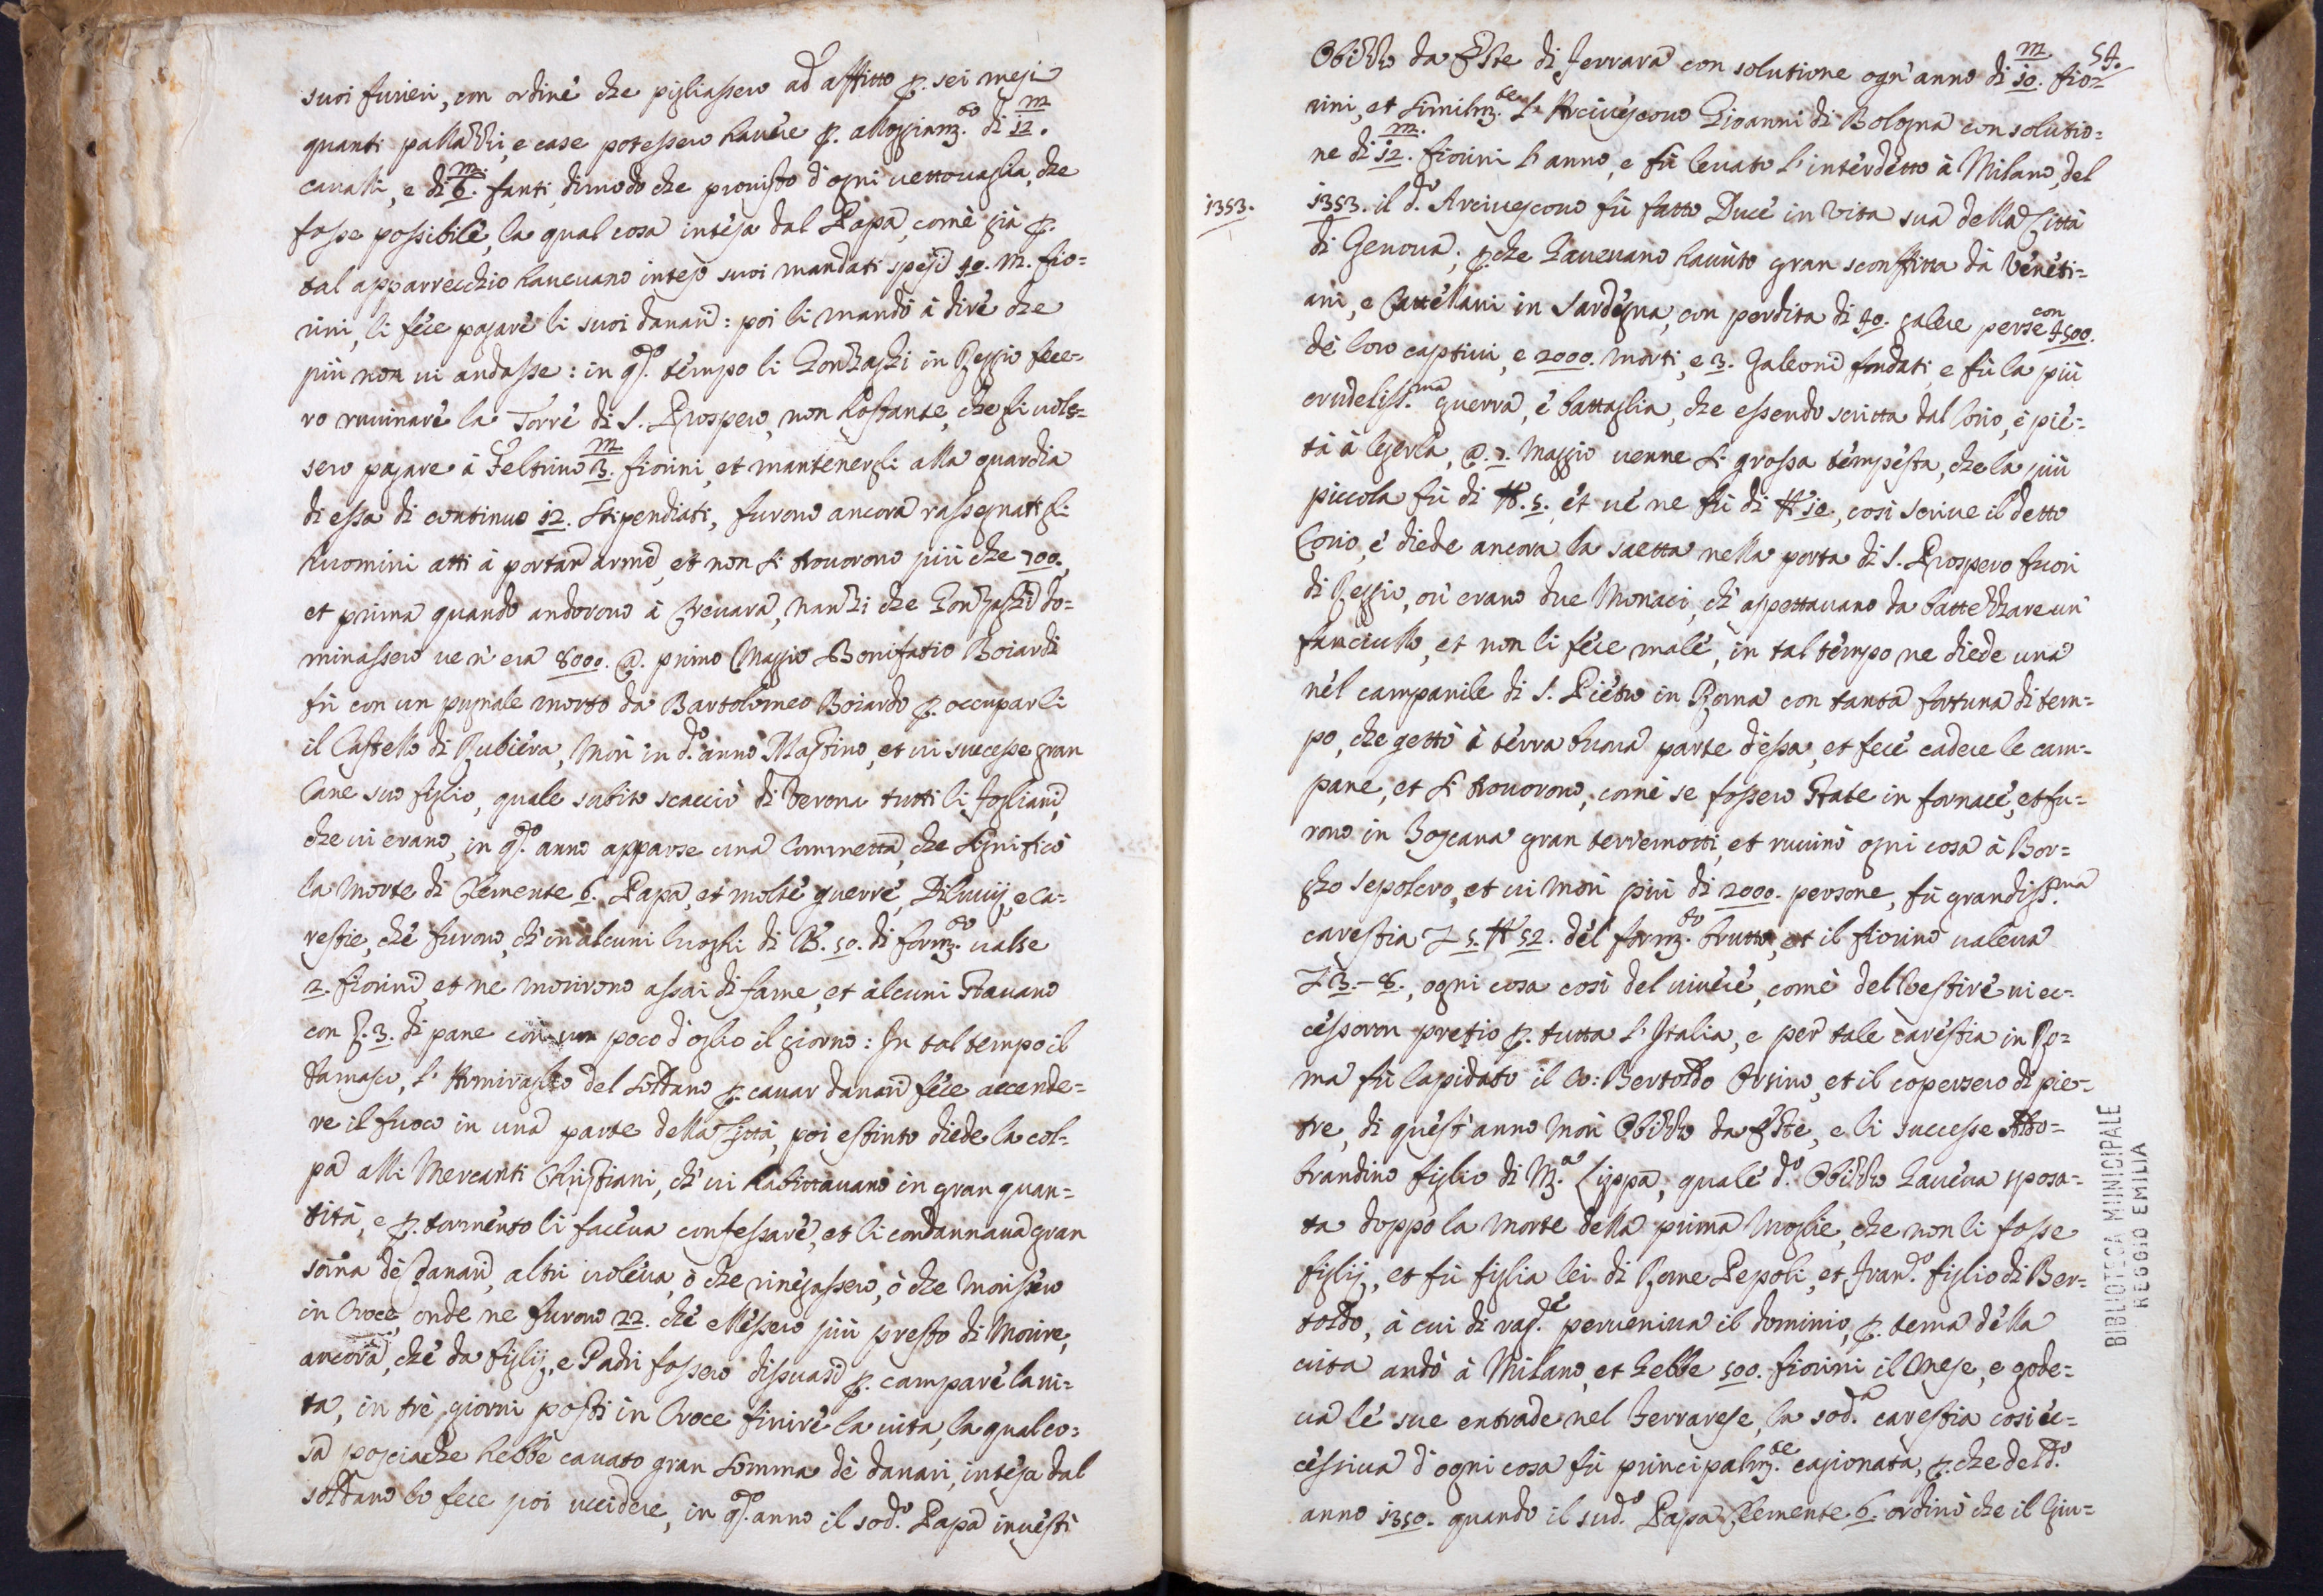 suoi furieri, con ordine che pigliassero ad affitto p. sei mesi
quanti pallazzi, e case potessero havere p. alloggiam.to di 12.m
cavalli, e di 6.m fanti, dimodo che provisto d'ogni vettovaglia, che
fosse possibile, la qual cosa intesa dal Papa, come già p.
tal apparrecchio havevano inteso suoi mandati spesi 40. m. fio=
rini, li fece pagare li suoi danari: poi li mandò à dire che
più non vi andasse: in q.to tempo li Gonzaghi in Reggio fece=
ro ruvinare la Torre di S. Prospero, non hostante, che si voles=
sero pagare à Feltrino 3.m fiorini, et mantenergli alla guardia
di essa di continuo 12. stipendiati, furono ancora rassegnati gli
huomini atti à portar armi, et non si trovorono più che 700.
et prima quando andorono à Crevara, nanzi che Gonzaghi do=
minassero ve n'era 8000. @. primo Maggio Bonifatio Boiardi
fù con un pugnale morto da Bartolomeo Boiardo p. occuparli
il Castello di Rubiera, Morì in d.o anno Mastino, et vi successe gran
Cane suo figlio, quale subito scacciò di Verona tutti li Fogliani,
che vi erano, in q.to anno apparse una Commetta, che significò
la Morte di Clemente 6. Papa, et molte guerre, Diluvij, e ca=
restie, che furono, ch'in alcuni luoghi di lb. 50. di form.to valse
2. fiorini, et ne morirono assai di fame, et alcuni stavano
con ℥. 3. di pane con un poco d'oglio il giorno: In tal tempo il
Damasco, l'Armiraglio del Soldano p. cavar danari fece accende=
re il fuoco in una parte della Città, poi estinto diede la col=
pa alli Mercanti Christiani, ch'vi habittavano in gran quan=
tità, e p. tormento li faceva confessare, et li condannava gran
soma de danari, altri voleva, ò che rinegassero, ò che morissero
in Croce, onde ne furono 22. che ellessero più presto di Morire,
ancora, che da figlij, e Padri fossero dissuasi p. campare la vi=
ta, in trè giorni posti in Croce finire la vita, la qual co=
sa posciache hebbe cavato gran somma de danari, intesa dal
soldano lo fece poi uccidere, in q.to anno il sod.o Papa investì
54.
Obizzo da Este di Ferrara con solutione ogn'anno di 10.m fio=
rini, et similm.te l'Arcivescovo Gioanni di Bologna con solutio=
ne di 12.m fiorini l'anno, e fù levato l'interdetto à Milano, del
1353.
1353. il d.o Arcivescovo fù fatto Duce in vita sua della Città
di Genova; p.che havevano havuto gran sconfitta da Veneti=
ani, e Cattellani in Sardegna, con perdita di 40. galere perse con 4500.
de loro captivi, e 2000. morti, e 3. Galeoni fondati, e fù la più
crudeliss.ma guerra, e battaglia, che essendo scritta dal Corio, è pie=
tà à legerla, @. 7. Maggio venne sì grossa tempesta, che la più
piccola fù di lb. 5. et ve ne fù di lb 10., così scrive il detto
Corio, e diede ancora la saetta nella porta di S. Prospero fuori
di Reggio, ov'erano due Monaci, ch'aspettavano da battezzare un
fanciullo, et non li fece male, in tal tempo ne diede una
nel campanile di S. Pietro in Roma con tanta fortuna di tem=
po, che gettò à terra buona parte d'essa, et fece cadere le cam=
pane, et si trovorono, come se fossero state in fornace, et fu=
rono in Toscana gran terremotti, et ruvinò ogni cosa à Bor=
gho sepolcro, et vi morì più di 2000. persone, fù grandiss.ma
carestia £ 5. lb 52. del form.to brutto, et il fiorino valeva
£ 3.-8., ogni cosa così del vivere, come del vestire vi ec=
cessoron pretio p. tutta l'Italia, e per tale carestia in Ro=
ma fù lapidato il Co: Bertoldo Orsino, et il copersero di pie=
tre, di quest'anno Morì Obizzo da Este, e li successe Aldo=
brandino figlio di M.a Lippa, quale d.o Obizzo haveva sposa=
ta doppo la Morte della prima Moglie, che non li fosse
figlij, et fù figlia lei di Rome Pepoli, et Fran.co figlio di Ber=
toldo, à cui di rag.e perveniva il dominio, p. tema della
vita andò à Milano, et hebbe 500. fiorini il Mese, e gode=
va le sue entrade nel Ferrarese, la sod.a carestia così ec=
cessiva d'ogni cosa fù principalm.te cagionata, p.che del d.o
anno 1350. quando il sud.o Papa Clemente 6. ordinò che il Giu=
BIBLIOTECA MUNICIPALE
REGGIO EMILIA